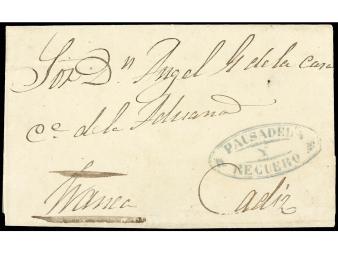 Sor Dn Angel G de la Casa
Ce de la Aduana
PAUSADELA
Y
NEGUERO
Franca
Cadiz